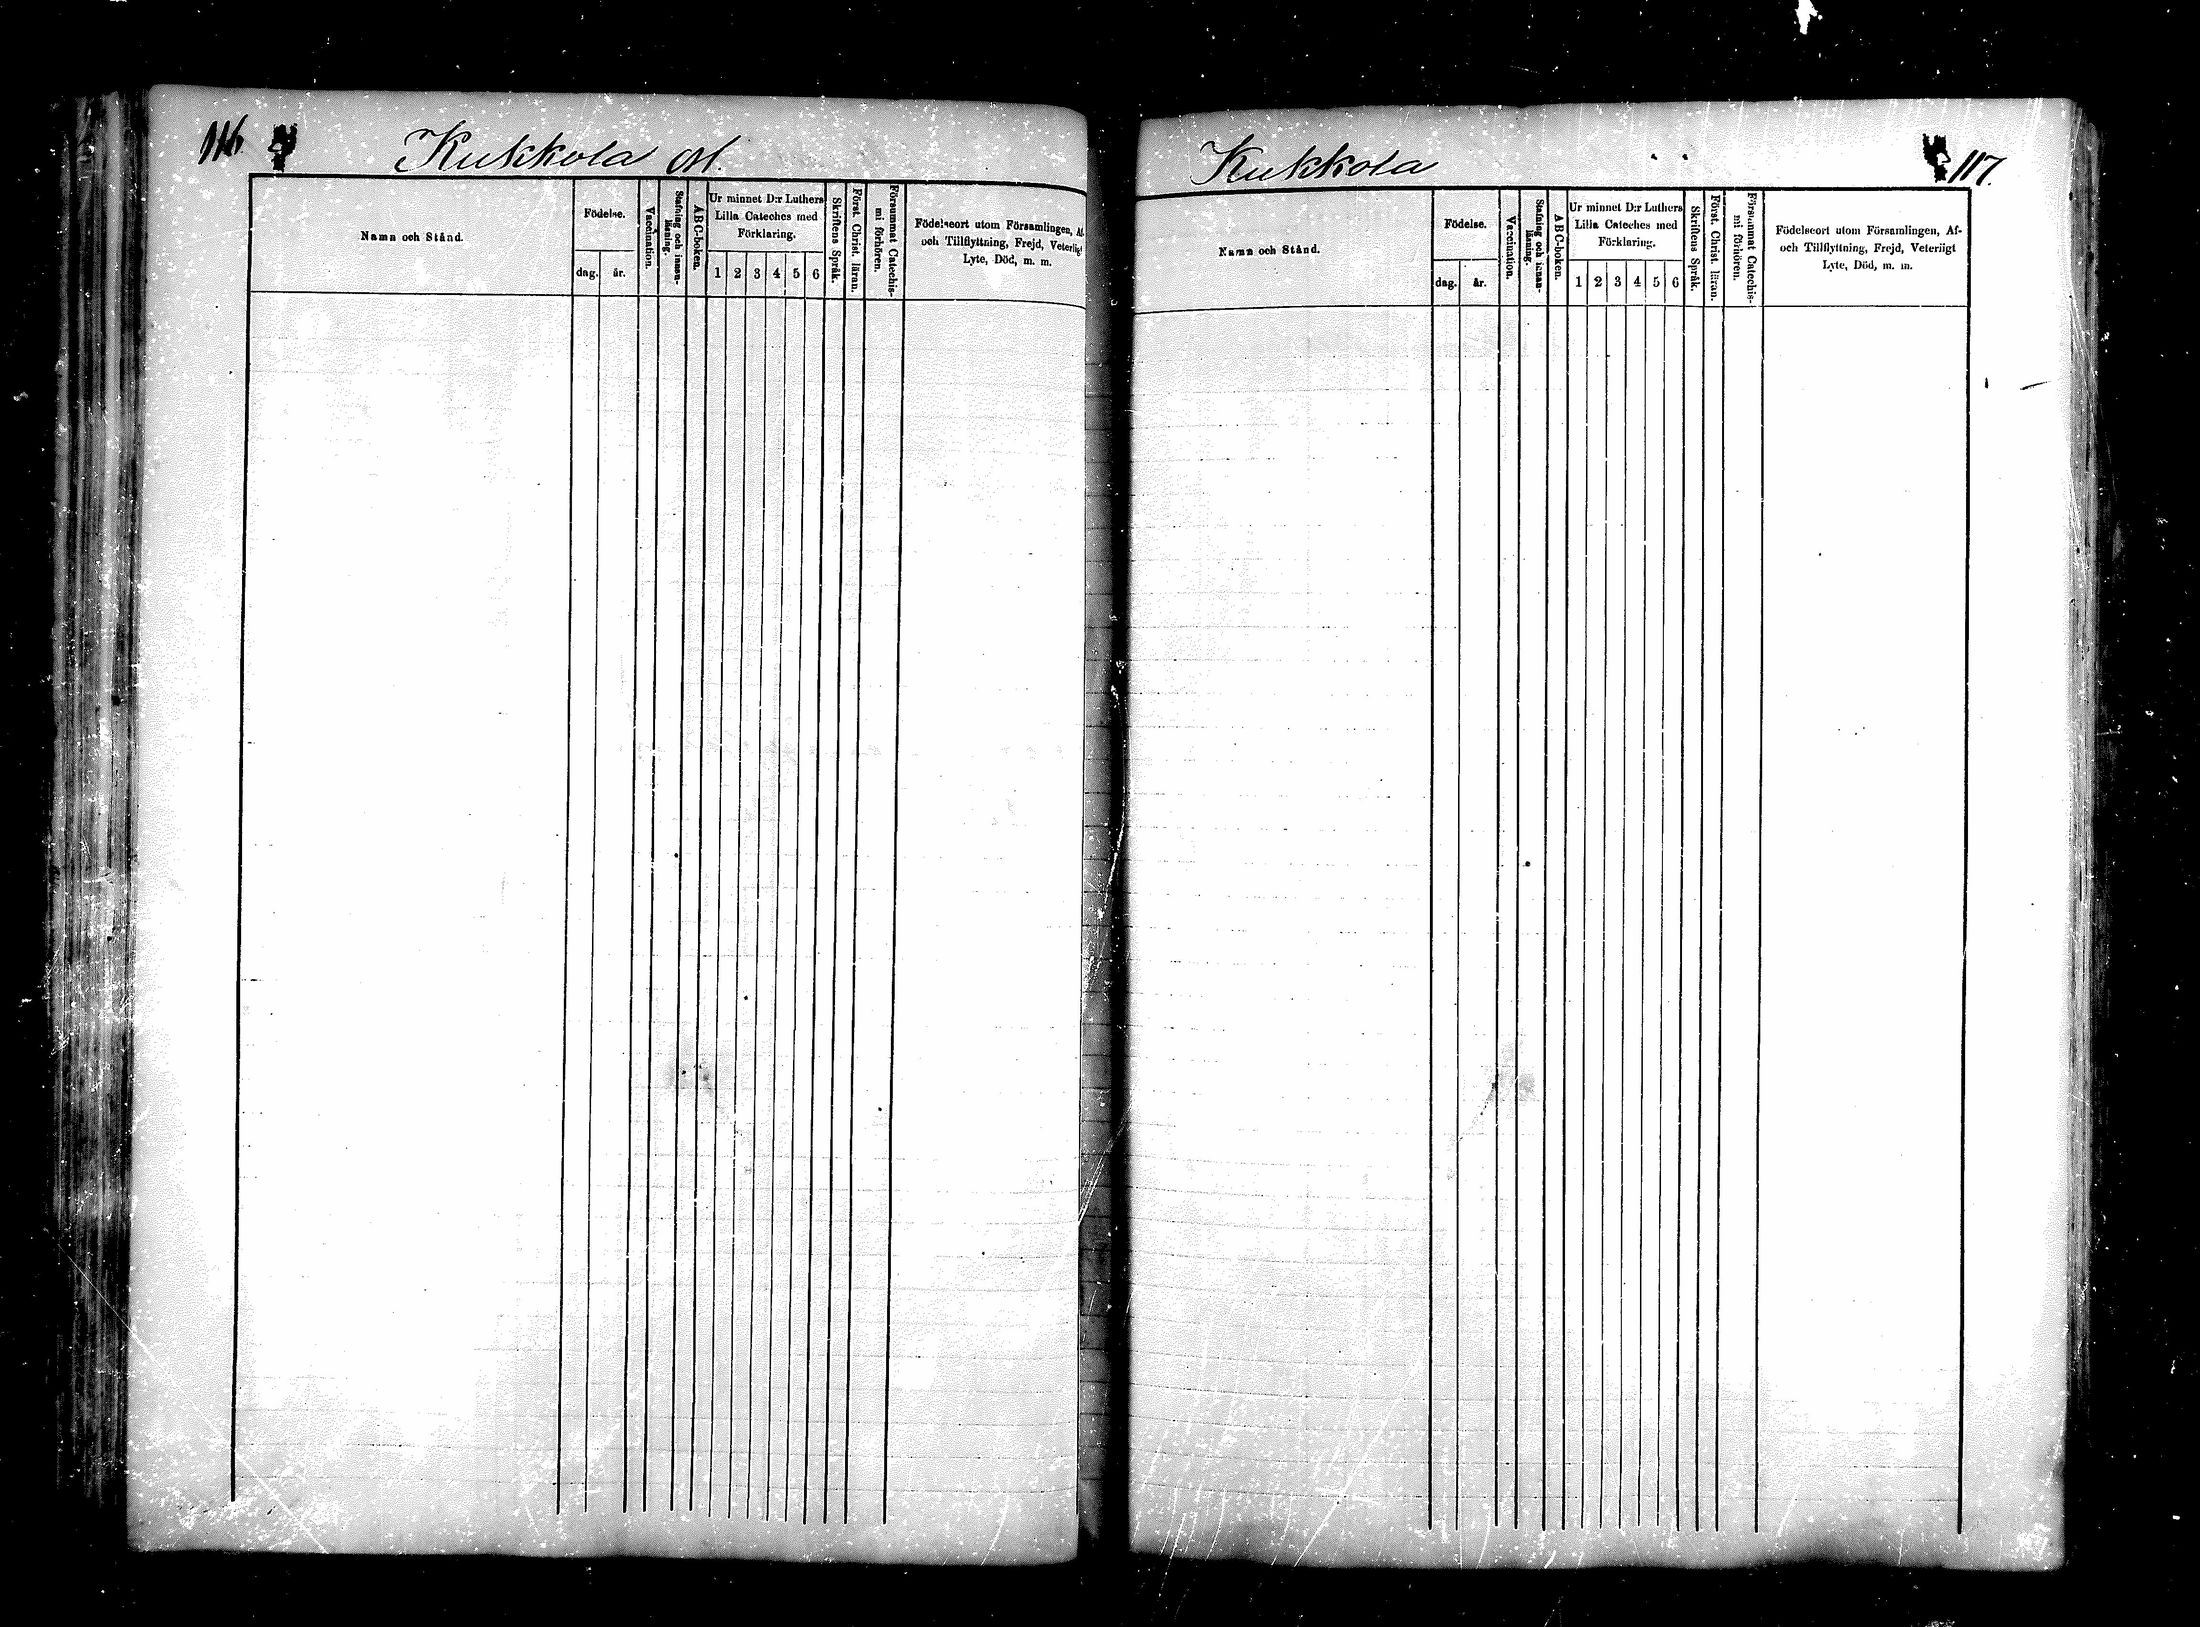 116.
Kukkola
Namn och Stånd.
Födelse.
dag.
år.
Vaccination.
Stafning och innan-
läsning.
ABC-boken.
Ur minnet D:r Luthers
Lilla Cateches med
Förklaring.
1 2 3 4 5 6
Skriftens Språk.
Först. Christ. läran.
Försummat Catechis-
mi förhören.
Födelseort utom Församlingen, Af-
och Tillflyttning, Frejd, Veterligt
Lyte, Död, m. m.
Kukkola
117.
Namn och Stånd.
Födelse.
dag.
år.
Vaccination.
Stafning och innan-
läsning.
ABC-boken.
Ur minnet D:r Luthers
Lilla Cateches med
Förklaring.
1 2 3 4 5 6
Skriftens Språk.
Först. Christ. läran.
Försummat Catechis-
mi förhören.
Födelseort utom Församlingen, Af-
och Tillflyttning, Frejd, Veterligt
Lyte, Död, m. m.